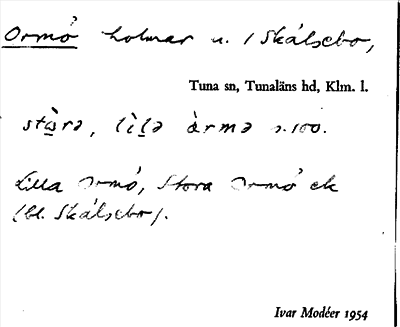 Ormö holmar u. /Skálsebo,
Tuna sn, Tunaläns hd, Klm. l.
stὼrə, lìlə òrmə s.100.
Lilla Ormö, Stora Ormö ek
(bl. Skálsebo).
Ivar Modéer 1954